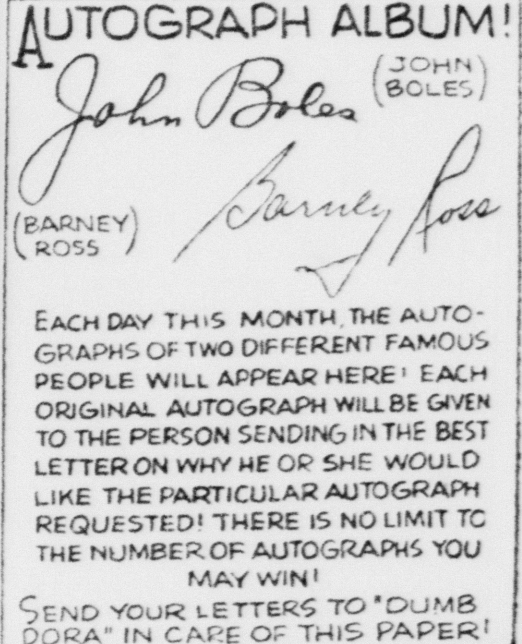 AUTOGRAPH ALBUM!
John Boles
(JOHN
BOLES)
Barney Ross
(BARNEY
ROSS)
EACH DAY THIS MONTH, THE AUTO-
GRAPHS OF TWO DIFFERENT FAMOUS
PEOPLE WILL APPEAR HERE! EACH
ORIGINAL AUTOGRAPH WILL BE GIVEN
TO THE PERSON SENDING IN THE BEST
LETTER ON WHY HE OR SHE WOULD
LIKE THE PARTICULAR AUTOGRAPH
REQUESTED! THERE IS NO LIMIT TO
THE NUMBER OF AUTOGRAPHS YOU
MAY WIN!
SEND YOUR LETTERS TO "DUMB
DORA" IN CARE OF THIS PAPER!